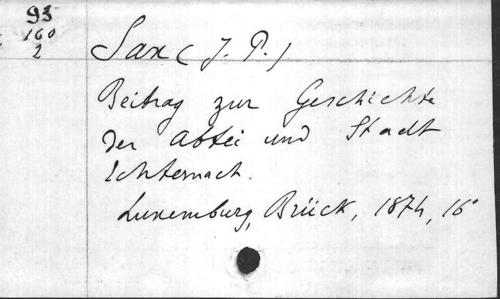 93
160
2
Sax (J. P.)
Beitrag zur Geschichte
der Abtei und Stadt
Echternach.
Luxemburg, Brück, 1874, 16°